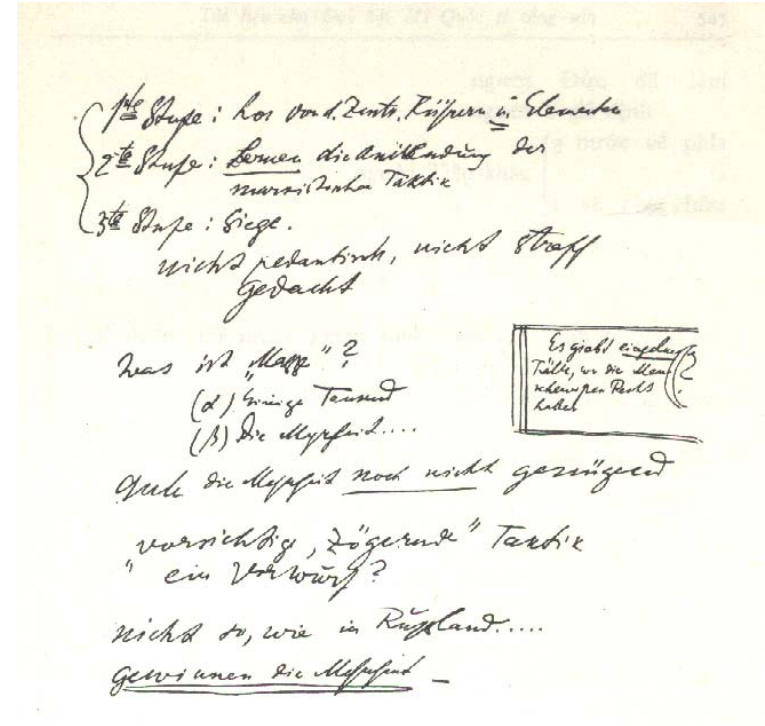 1te Stufe: Los von d. Zentr. Führern u Elementen
2te Stufe: Lernen die Anwendung der
marxistischen Taktik
3te Stufe: Siege.
nicht pedantisch, nicht straff
gedacht
Was ist „Masse“?
(α) Einige Tausend
(β) Die Mehrheit....
Es giebt einzelne
Fälle, wo die
haben
?
Auch die Mehrheit noch nicht genügend
„vorsichtig, zögernde“ Taktik
ein Vorwurf?
nicht so, wie in Rußland.....
Gewinnen die Mehrheit –